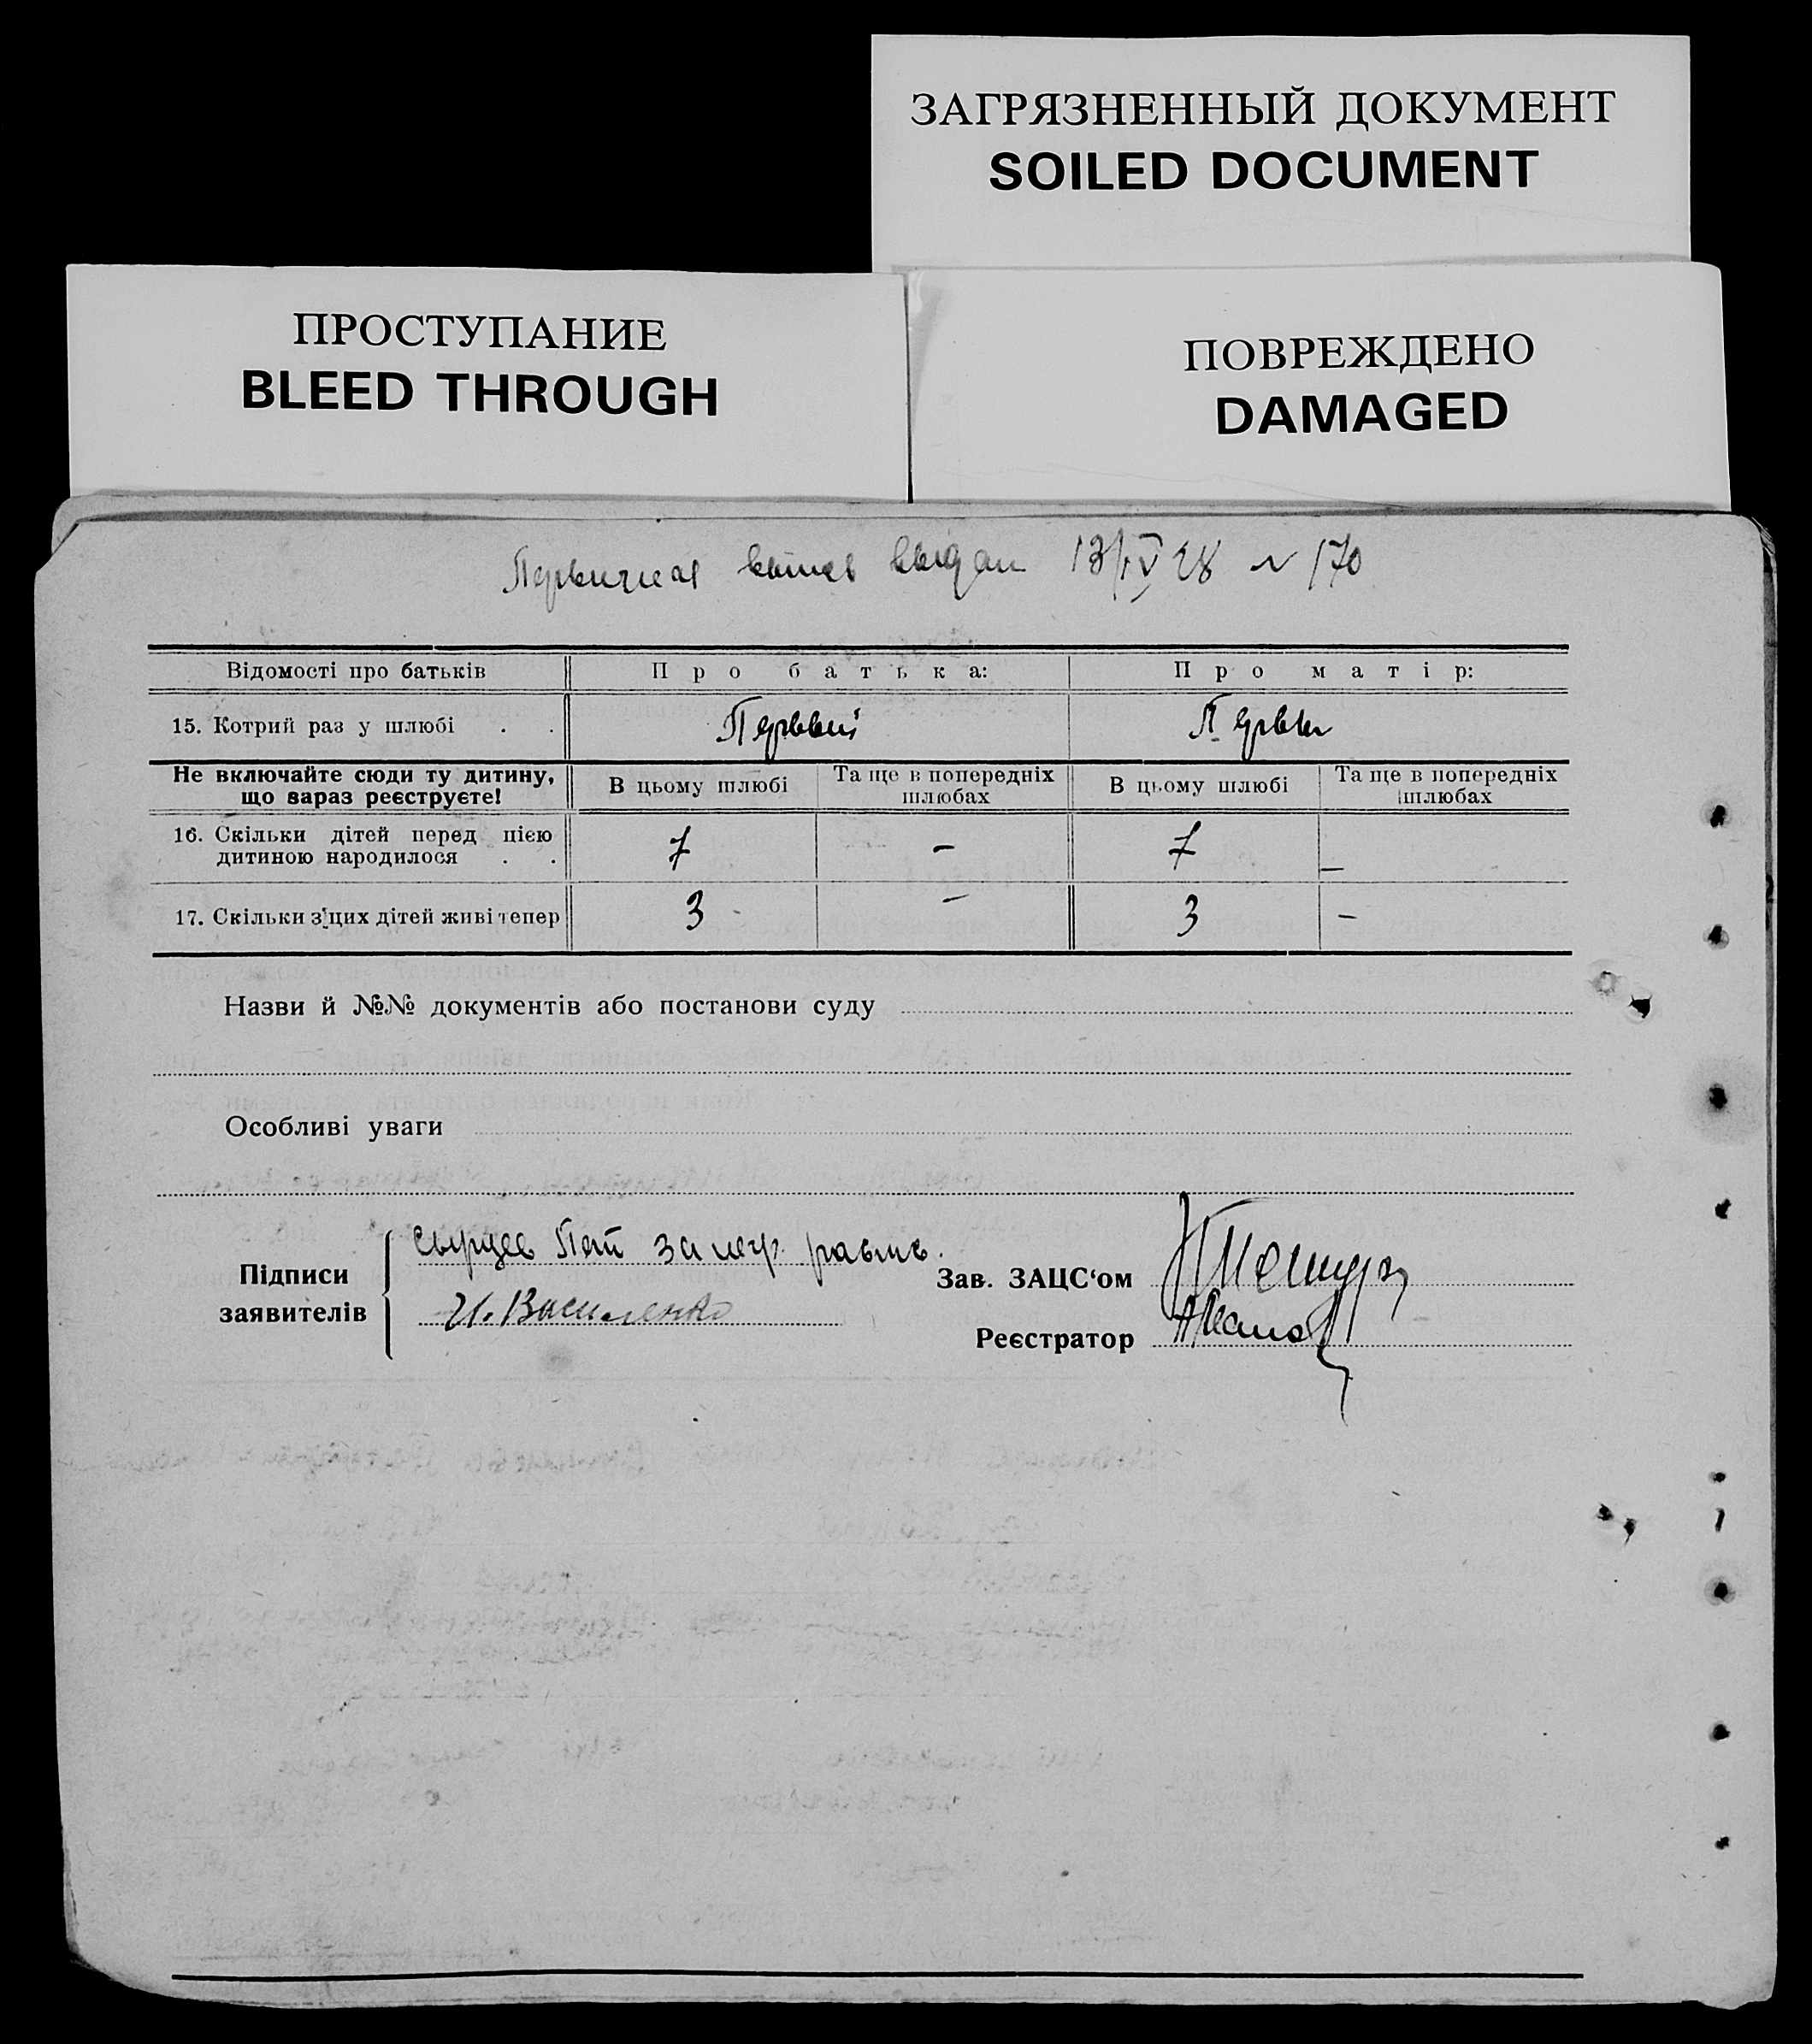 ЗАГРЯЗНЕННЫЙ ДОКУМЕНТ
SOILED DOCUMENT
ПРОСТУПАНИЕ
BLEED THROUGH
ПОВРЕЖДЕНО
DAMAGED
выдан 13/IV 28 N 170
Відомості про батьків Про батька: Про матір:
15. Котрий раз у шлюбі . . Первый Первы
Не включайте сюди ту дитину, що вараз реєструєте! В цьому шлюбі Та ще в попередніх шлюбах В цьому шлюбі Та ще в попередніх шлюбах
16. Скільки дітей перед цією
дитиною народилося . . 7 – 7 –
17. Скільки з цих дітей живі тепер 3 – 3 –
Назви й №№ документів або постанови суду
Особливі уваги
Підписи
заявителів
за негр.
И. Василенко
Зав. ЗАЦС‘ом
Реєстратор